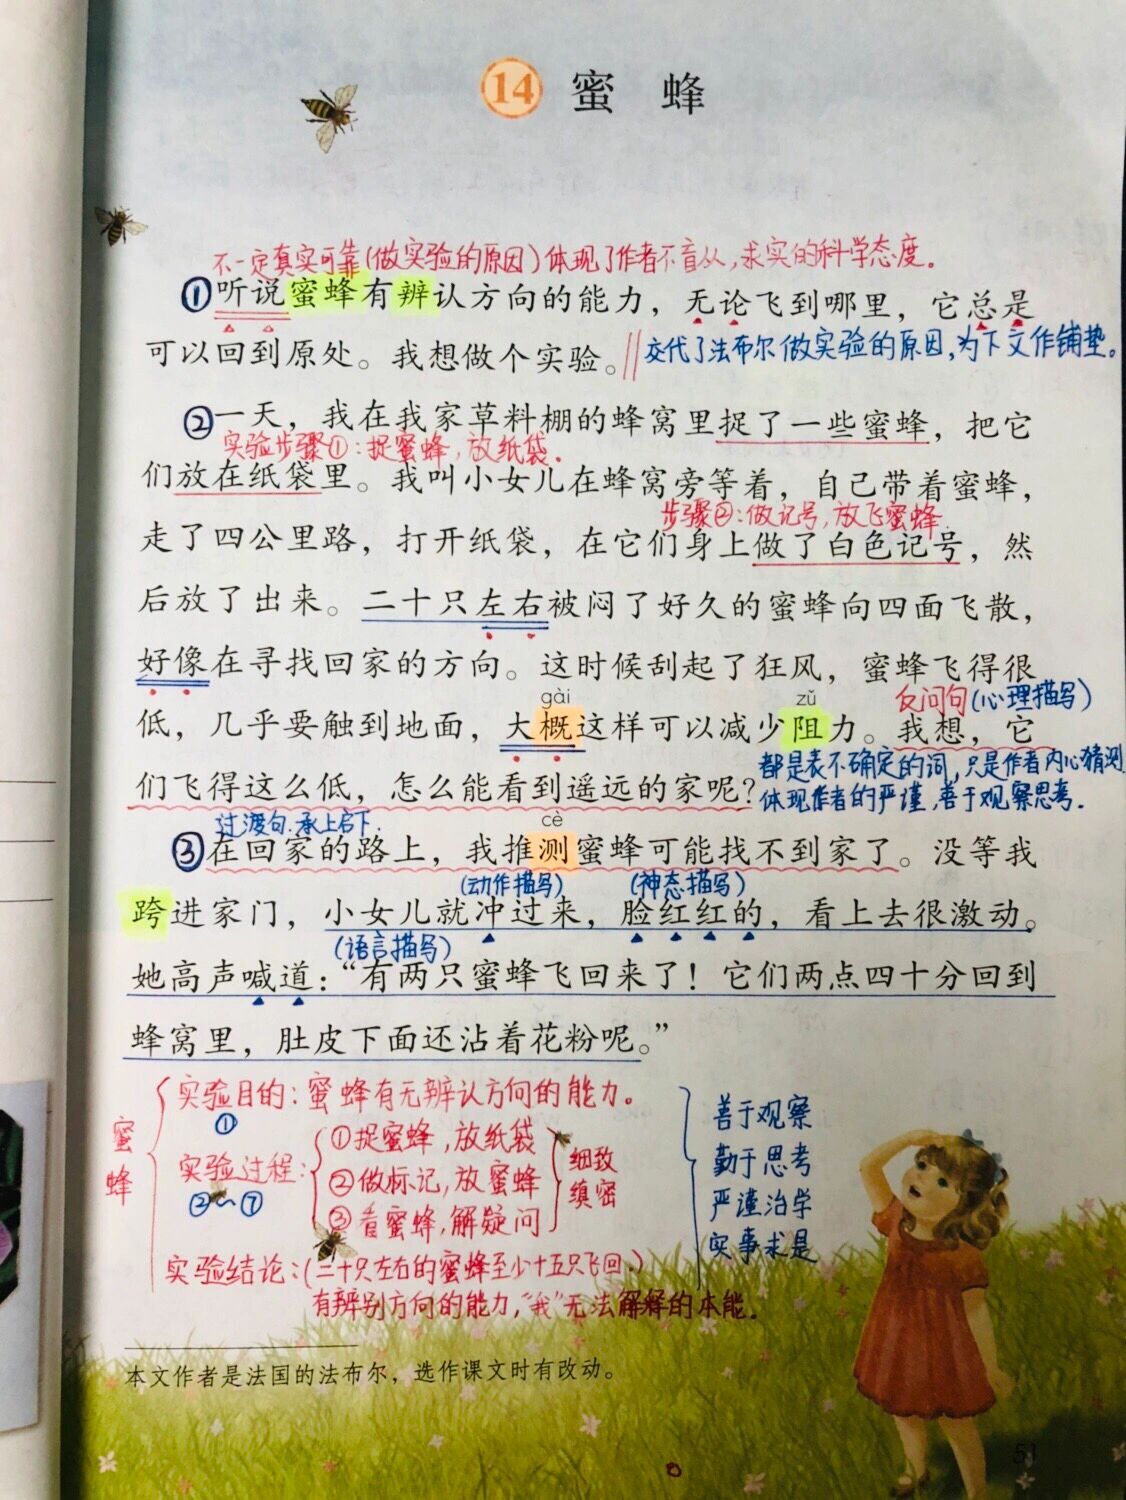 14 蜜 蜂
不一定真实可靠(做实验的原因)体现了作者不盲从,求实的科学态度。
①听说蜜蜂有辨认方向的能力，无论飞到哪里，它总是
可以回到原处。我想做个实验。
交代了法布尔做实验的原因,为下文作铺垫。
②一天，我在我家草料棚的蜂窝里捉了一些蜜蜂，把它
实验步骤①:捉蜜蜂,放纸袋.
们放在纸袋里。我叫小女儿在蜂窝旁等着，自己带着蜜蜂，
步骤②:做记号,放飞蜜蜂.
走了四公里路，打开纸袋，在它们身上做了白色记号，然
后放了出来。二十只左右被闷了好久的蜜蜂向四面飞散，
好像在寻找回家的方向。这时候刮起了狂风，蜜蜂飞得很
gài zǔ
反问句(心理描写)
低，几乎要触到地面，大概这样可以减少阻力。我想，它
都是表不确定的词,只是作者内心猜测
们飞得这么低，怎么能看到遥远的家呢？
体现作者的严谨,善于观察思考.
过渡句.承上启下.
cè
③在回家的路上，我推测蜜蜂可能找不到家了。没等我
(动作描写) (神态描写)
跨进家门，小女儿就冲过来，脸红红的，看上去很激动。
(语言描写)
她高声喊道：“有两只蜜蜂飞回来了！它们两点四十分回到
蜂窝里，肚皮下面还沾着花粉呢。”
蜜蜂
实验目的:蜜蜂有无辨认方向的能力。
①
实验过程:
②~⑦
①捉蜜蜂,放纸袋
②做标记,放蜜蜂
③看蜜蜂,解疑问
细致
缜密
实验结论:(二十只左右的蜜蜂至少十五只飞回.)
有辨别方向的能力,“我”无法解释的本能。
善于观察
勤于思考
严谨治学
实事求是
本文作者是法国的法布尔，选作课文时有改动。
51